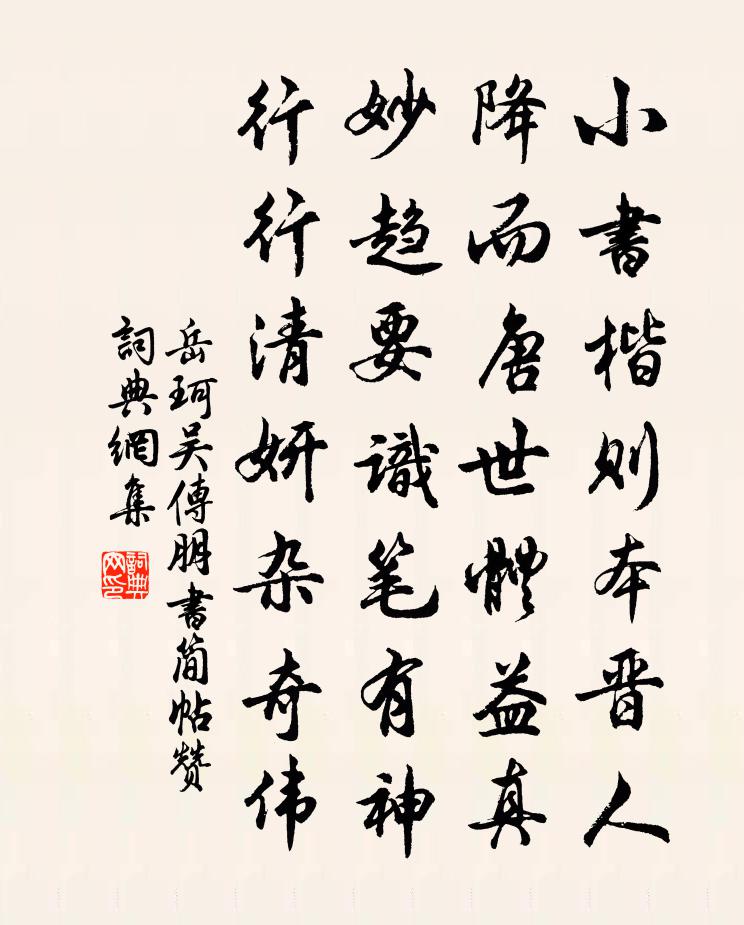 小書楷则本晋人
降而唐世體益真
妙趋要識笔有神
行行清妍杂奇伟
岳珂吴傅朋書简帖赞
詞典網集
詞典
网印